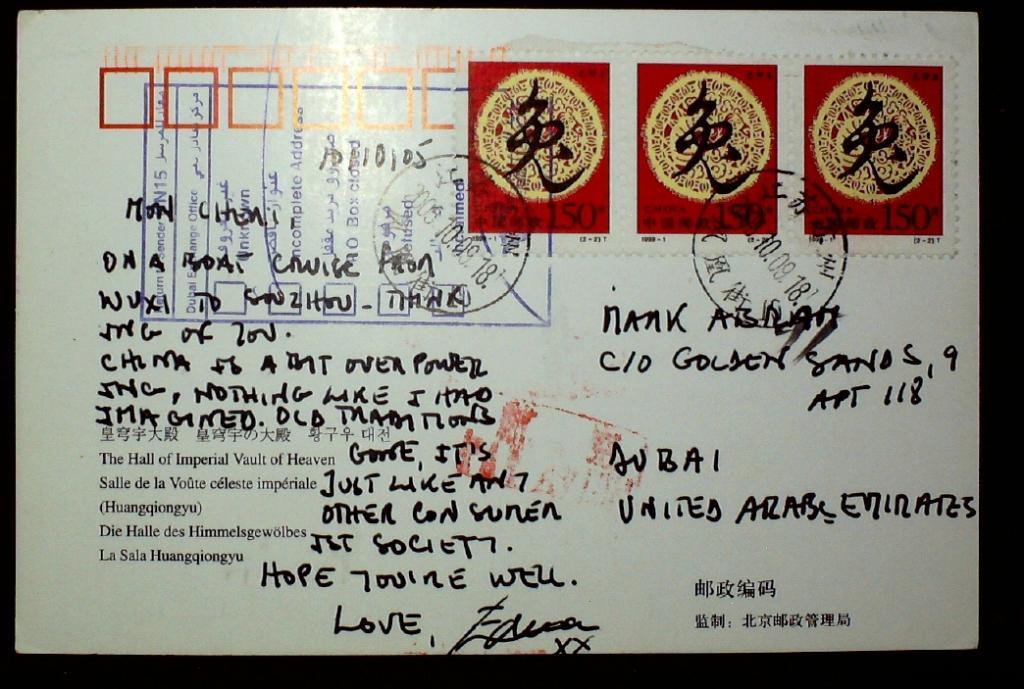 10/10/05
MON CHERI,
ON A BOAT CRUISE FROM
WUXI TO SOUZHOU - THINK
ING OF YOU.
CHINA IS A BIT OVERPOWER
ING, NOTHING LIKE I HAD
IMAGINED. OLD TRADITIONS
GONE, IT'S
JUST LIKE ANY
OTHER CONSUMER
IST SOCIETY.
HOPE YOU'RE WELL.
LOVE,
XX
皇穹宇大殿 皇穹宇の大殿 황궁우 대전
The Hall of Imperial Vault of Heaven
Salle de la Voûte céleste impériale
(Huangqiongyu)
Die Halle des Himmelsgewölbes
La Sala Huangqiongyu
MARK
C/O GOLDEN SANDS, 9
APT 118
DUBAI
UNITED ARAB EMIRATES
邮政编码
监制：北京邮政管理局
兔
中国邮政 150
(2-2)T
兔
中国邮政 150
1999-1 (2-2)T
兔
150
1999-1 (2-2)T
江苏
10.09.18
2005.10.09.18
N15
Dubai Exchange Office
Incomplete Address
Box closed
Refused